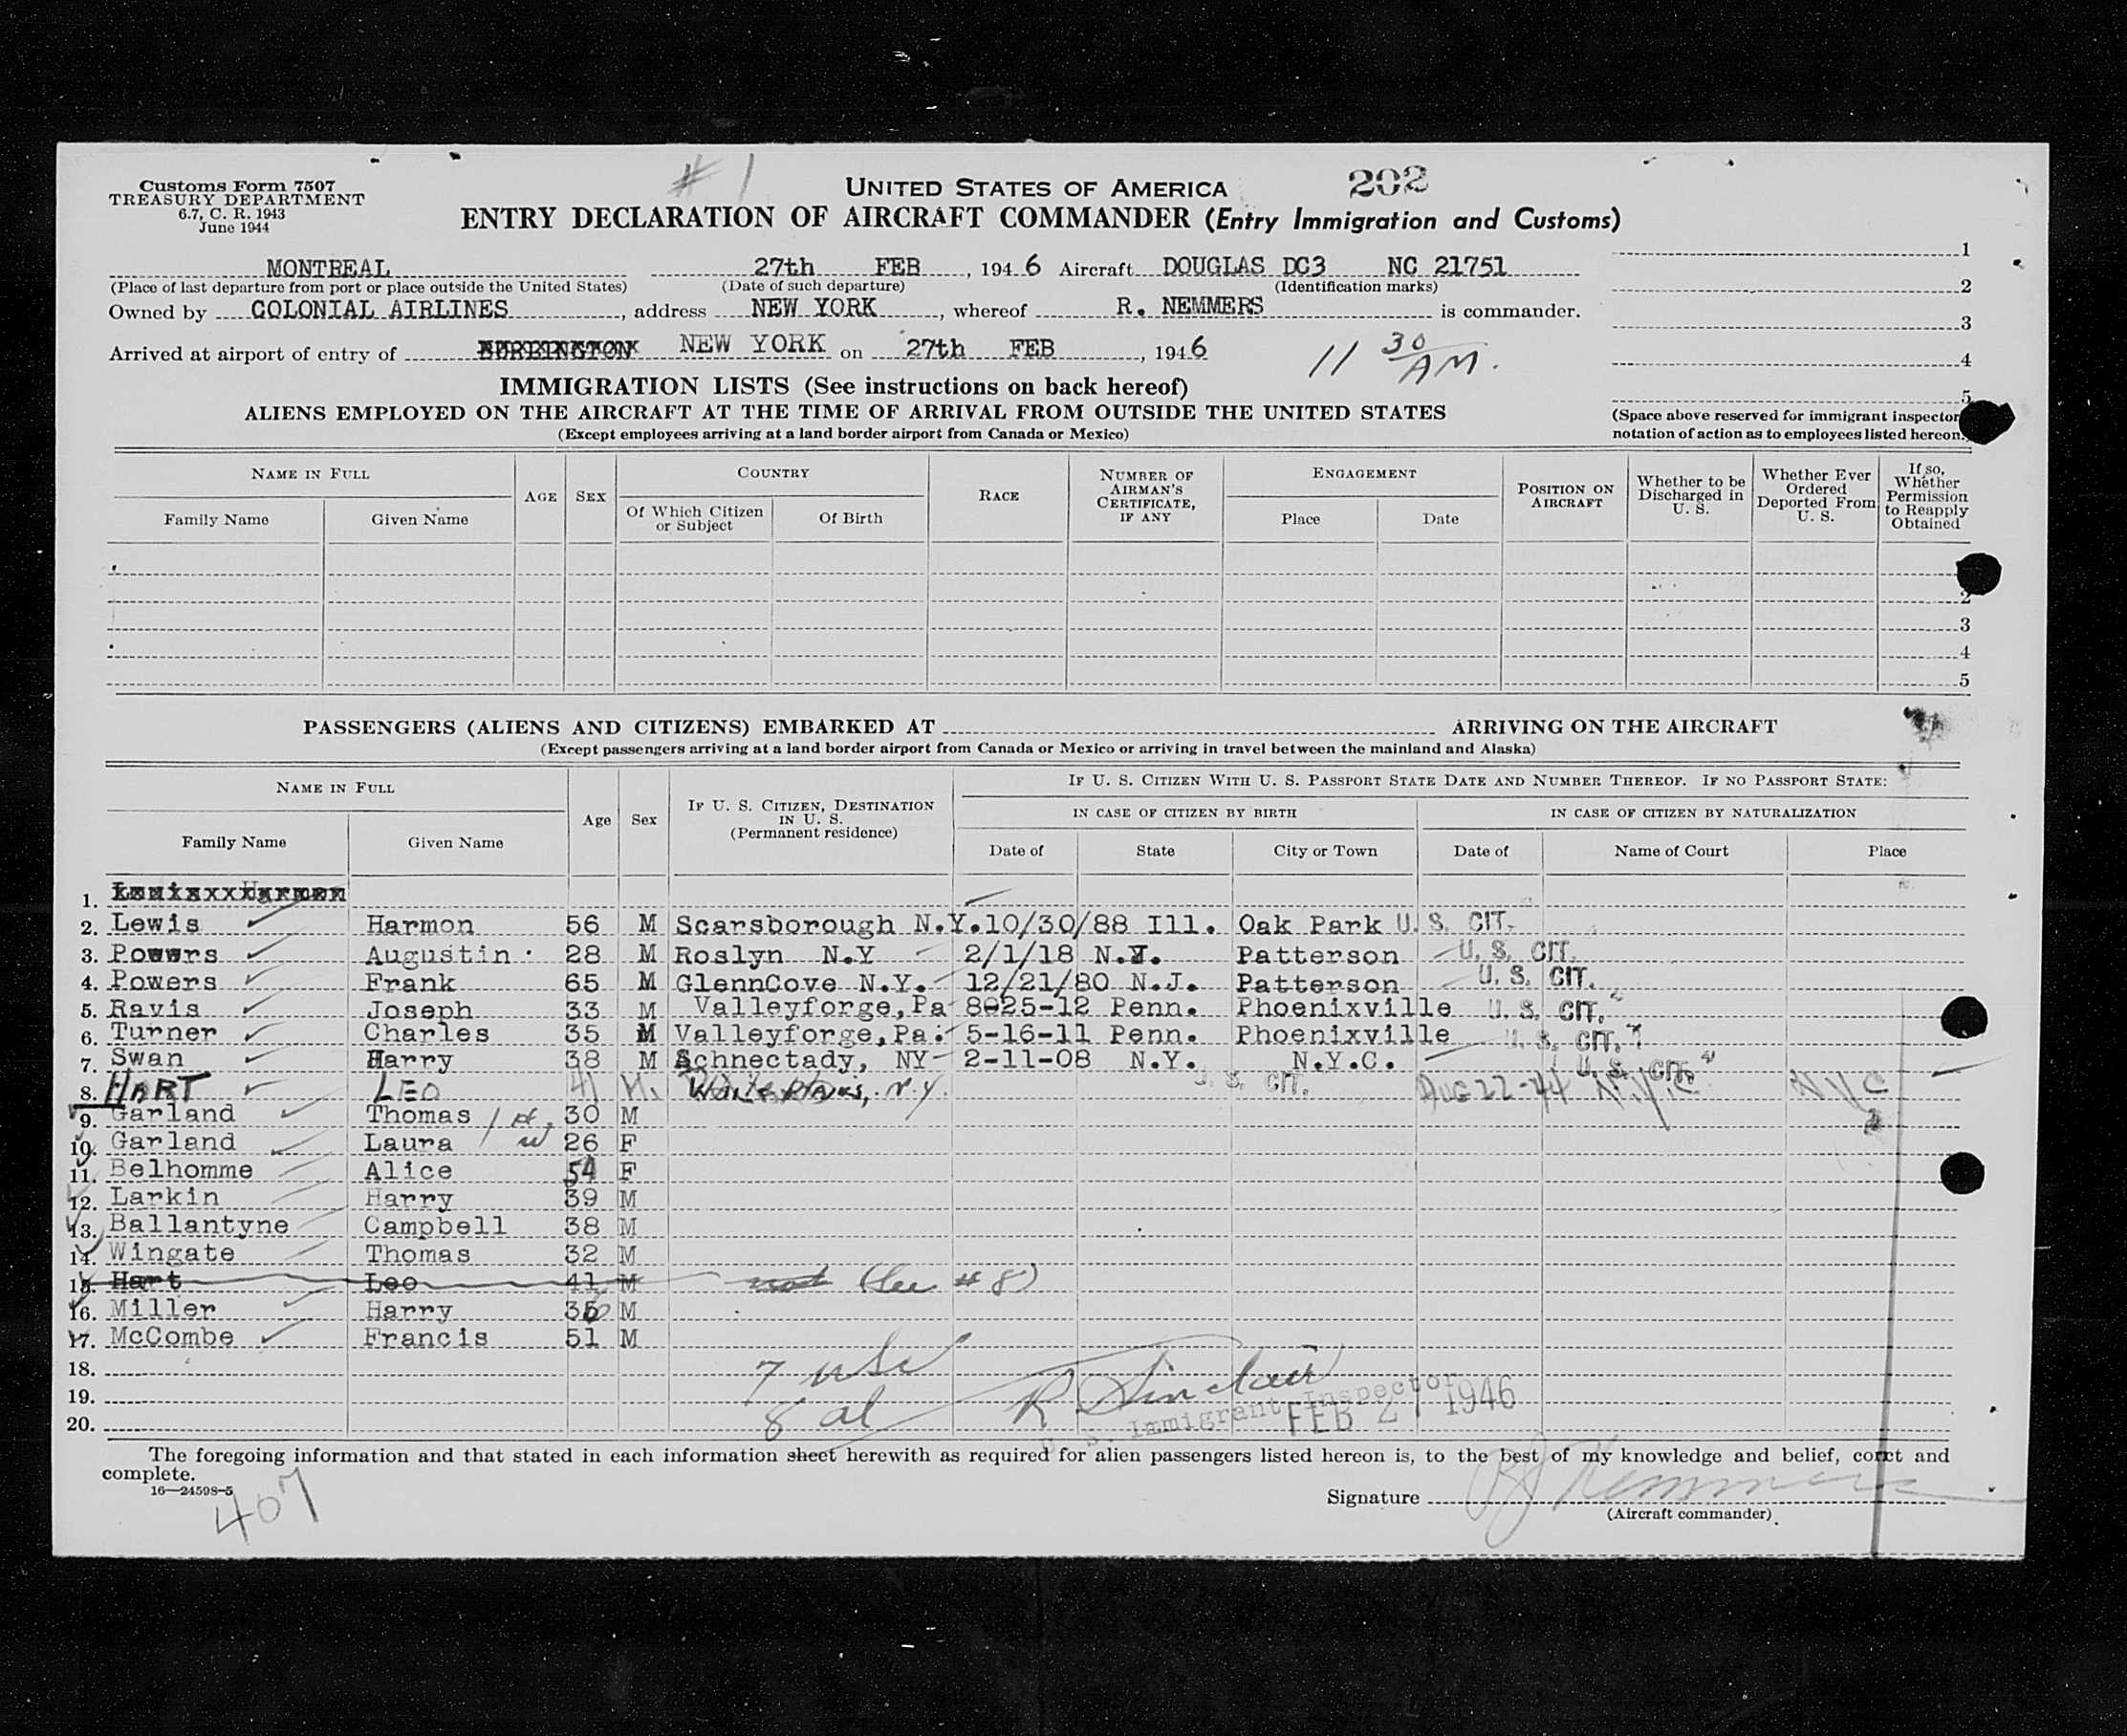 # 1
202
Customs Form 7507
TREASURY DEPARTMENT
6.7, C. R. 1943
June 1944
UNITED STATES OF AMERICA
ENTRY DECLARATION OF AIRCRAFT COMMANDER (Entry Immigration and Customs)
MONTREAL 27th FEB , 194 6 Aircraft DOUGLAS DC3 NC 21751
(Place of last departure from port or place outside the United States) (Date of such departure) (Identification marks)
Owned by COLONIAL AIRLINES , address NEW YORK , whereof R. NEMMERS is commander.
Arrived at airport of entry of BURLINGTON NEW YORK on 27th FEB , 194 6 11 30 AM.
1
2
3
4
5
(Space above reserved for immigrant inspector
notation of action as to employees listed hereon.)
IMMIGRATION LISTS (See instructions on back hereof)
ALIENS EMPLOYED ON THE AIRCRAFT AT THE TIME OF ARRIVAL FROM OUTSIDE THE UNITED STATES
(Except employees arriving at a land border airport from Canada or Mexico)
NAME IN FULL
Family Name Given Name
AGE SEX
COUNTRY
Of Which Citizen or Subject
Of Birth
RACE
NUMBER OF AIRMAN'S CERTIFICATE, IF ANY
ENGAGEMENT
Place Date
POSITION ON AIRCRAFT
Whether to be Discharged in U. S.
Whether Ever Ordered Deported From U. S.
If so, Whether Permission to Reapply Obtained
2
3
4
5
PASSENGERS (ALIENS AND CITIZENS) EMBARKED AT ARRIVING ON THE AIRCRAFT
(Except passengers arriving at a land border airport from Canada or Mexico or arriving in travel between the mainland and Alaska)
NAME IN FULL
Family Name Given Name
Age Sex
IF U. S. CITIZEN, DESTINATION IN U. S. (Permanent residence)
IF U. S. CITIZEN WITH U. S. PASSPORT STATE DATE AND NUMBER THEREOF. IF NO PASSPORT STATE:
IN CASE OF CITIZEN BY BIRTH IN CASE OF CITIZEN BY NATURALIZATION
Date of State City or Town Date of Name of Court Place
1.
2. Lewis Harmon 56 M Scarsborough N.Y. 10/30/88 Ill. Oak Park U. S. CIT.
3. Powers Augustin 28 M Roslyn N.Y 2/1/18 N.J. Patterson U. S. CIT.
4. Powers Frank 65 M GlennCove N.Y. 12/21/80 N.J. Patterson U. S. CIT.
5. Ravis Joseph 33 M Valleyforge,Pa 8-25-12 Penn. Phoenixville U. S. CIT.
6. Turner Charles 35 M Valleyforge,Pa. 5-16-11 Penn. Phoenixville U. S. CIT.
7. Swan Harry 38 M Schnectady, NY 2-11-08 N.Y. N.Y.C. U. S. CIT.
8. HART LEO 41 M. White Plains, N.Y. U. S. CIT. AUG 22-44 N.Y.C NYC
9. Garland Thomas H. 30 M
10. Garland Laura W 26 F
11. Belhomme Alice 54 F
12. Larkin Harry 39 M
13. Ballantyne Campbell 38 M
14. Wingate Thomas 32 M
15. Hart Leo 41 M (See # 8)
16. Miller Harry 36 M
17. McCombe Francis 51 M
18.
19.
20.
7 usc
8 al
R Sinclair
U. S. Immigrant Inspector
FEB 27 1946
The foregoing information and that stated in each information sheet herewith as required for alien passengers listed hereon is, to the best of my knowledge and belief, corret and
complete.
16—24598-5
407
Signature R J Nemmers
(Aircraft commander)